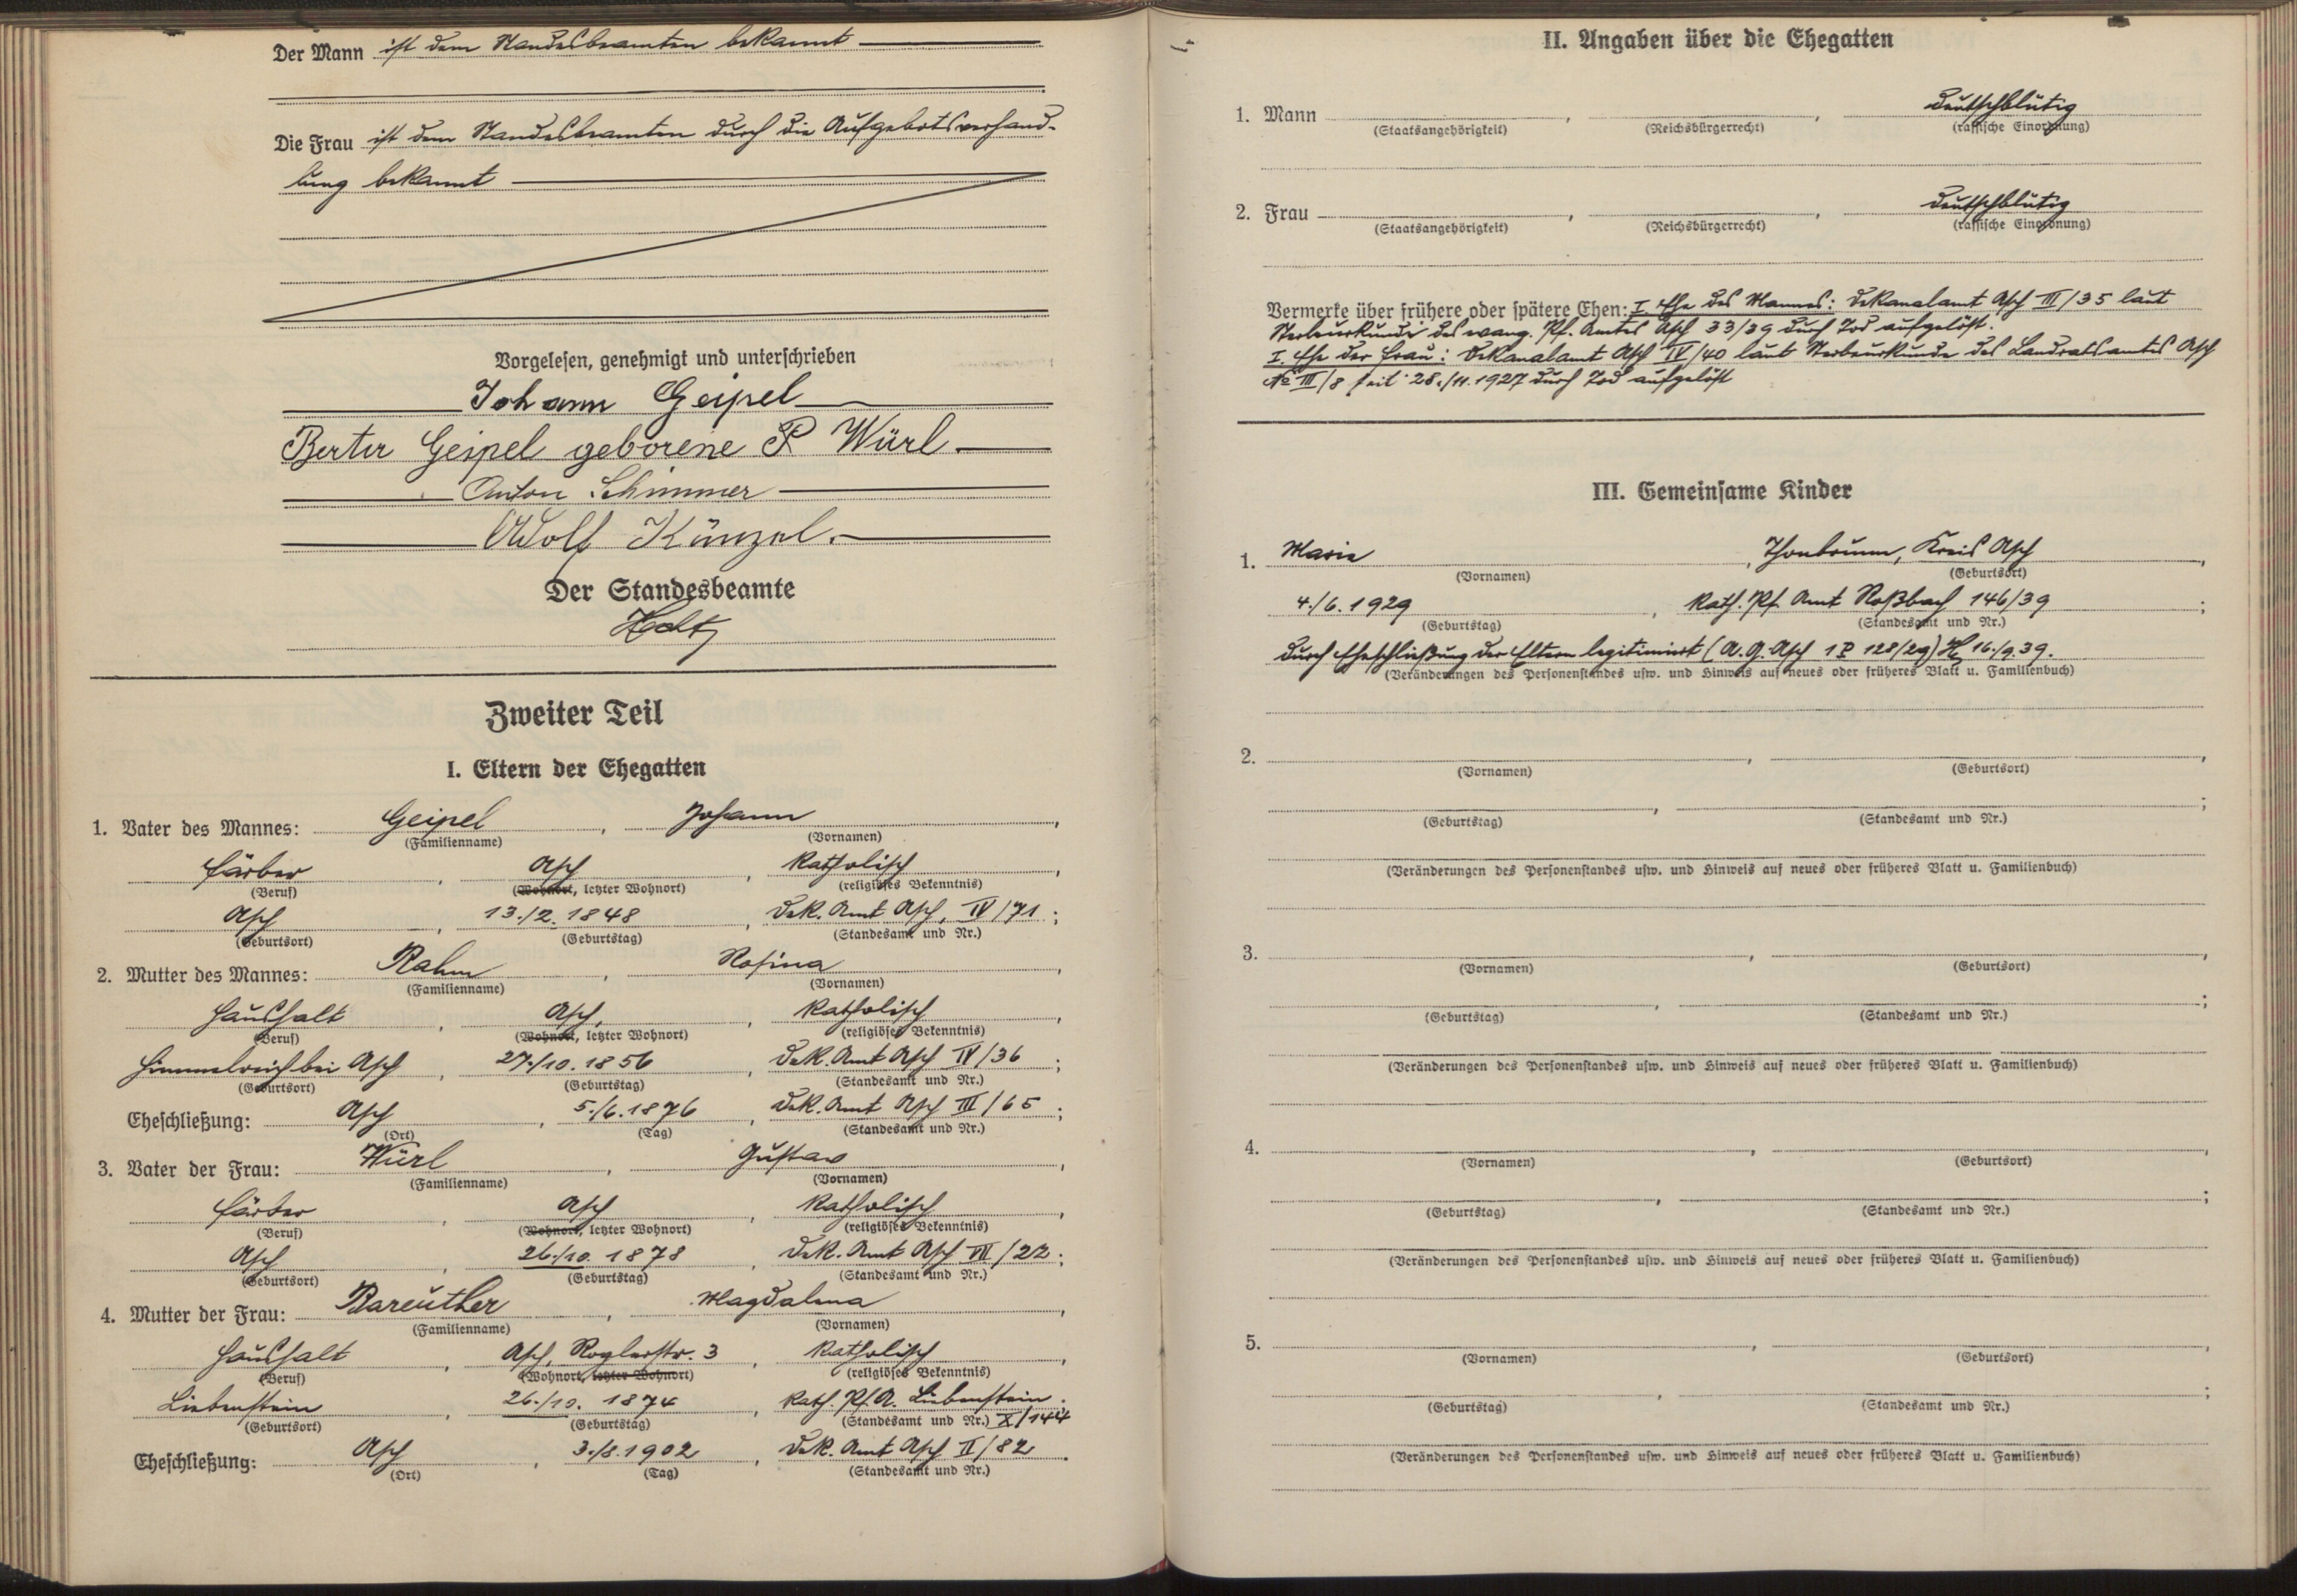 Der Mann ist dem Standesbeamten bekannt
Die Frau ist dem Standesbeamten durch die Aufgebotsverhand-
lung bekannt
Vorgelesen, genehmigt und unterschrieben
Johann Geipel
Berta Geipel geborene Würl
Anton Schimmer
Adolf Künzel.
Der Standesbeamte
Zweiter Teil
I. Eltern der Ehegatten
1. Vater des Mannes: Geipel, Johann,
(Familienname) (Vornamen)
Färber, Asch, katholisch,
(Beruf) (Wohnort, letzter Wohnort) (religiöses Bekenntnis)
Asch, 13./2. 1848, Dek. Amt Asch, IV/71;
(Geburtsort) (Geburtstag) (Standesamt und Nr.)
2. Mutter des Mannes: Rahm, Rosina,
(Familienname) (Vornamen)
Haushalt, Asch, katholisch,
(Beruf) (Wohnort, letzter Wohnort) (religiöses Bekenntnis)
Himmelreich bei Asch, 27./10. 1856, Dek. Amt Asch IV/36;
(Geburtsort) (Geburtstag) (Standesamt und Nr.)
Eheschließung: Asch, 5./6. 1876, Dek. Amt Asch III/65;
(Ort) (Tag) (Standesamt und Nr.)
3. Vater der Frau: Würl, Gustav,
(Familienname) (Vornamen)
Färber, Asch, katholisch,
(Beruf) (Wohnort, letzter Wohnort) (religiöses Bekenntnis)
Asch, 26./10. 1878, Dek. Amt Asch VII/22;
(Geburtsort) (Geburtstag) (Standesamt und Nr.)
4. Mutter der Frau: Bareuther, Magdalena,
(Familienname) (Vornamen)
Haushalt, Asch, Roglerstr. 3, katholisch,
(Beruf) (Wohnort, letzter Wohnort) (religiöses Bekenntnis)
Liebenstein, 26./10. 1874, kath. Pf. A. Liebenstein;
(Geburtsort) (Geburtstag) (Standesamt und Nr.) X/144
Eheschließung: Asch, 3./8. 1902, Dek. Amt Asch II/82.
(Ort) (Tag) (Standesamt und Nr.)
II. Angaben über die Ehegatten
1. Mann , , deutschblütig
(Staatsangehörigkeit) (Reichsbürgerrecht) (rassische Einordnung)
2. Frau , , deutschblütig
(Staatsangehörigkeit) (Reichsbürgerrecht) (rassische Einordnung)
Vermerke über frühere oder spätere Ehen: I. Ehe des Mannes: Dekanalamt Asch III/35 laut
Sterbeurkunde des evang. Pf. Amtes Asch 33/39 durch Tod aufgelöst.
I. Ehe der Frau: Dekanalamt Asch IV/40 laut Sterbeurkunde des Landratsamtes Asch
No III/8 seit 28./11. 1927 durch Tod aufgelöst
III. Gemeinsame Kinder
1. Marie, Thonbrunn, Kreis Asch,
(Vornamen) (Geburtsort)
4./6. 1929, Kath. Pf. Amt Roßbach 146/39;
(Geburtstag) (Standesamt und Nr.)
durch Eheschließung der Eltern legitimiert (A. G. Asch 1 P 128/29) 16./9. 39.
(Veränderungen des Personenstandes usw. und Hinweis auf neues oder früheres Blatt u. Familienbuch)
2. , ,
(Vornamen) (Geburtsort)
, ;
(Geburtstag) (Standesamt und Nr.)
(Veränderungen des Personenstandes usw. und Hinweis auf neues oder früheres Blatt u. Familienbuch)
3. , ,
(Vornamen) (Geburtsort)
, ;
(Geburtstag) (Standesamt und Nr.)
(Veränderungen des Personenstandes usw. und Hinweis auf neues oder früheres Blatt u. Familienbuch)
4. , ,
(Vornamen) (Geburtsort)
, ;
(Geburtstag) (Standesamt und Nr.)
(Veränderungen des Personenstandes usw. und Hinweis auf neues oder früheres Blatt u. Familienbuch)
5. , ,
(Vornamen) (Geburtsort)
, ;
(Geburtstag) (Standesamt und Nr.)
(Veränderungen des Personenstandes usw. und Hinweis auf neues oder früheres Blatt u. Familienbuch)